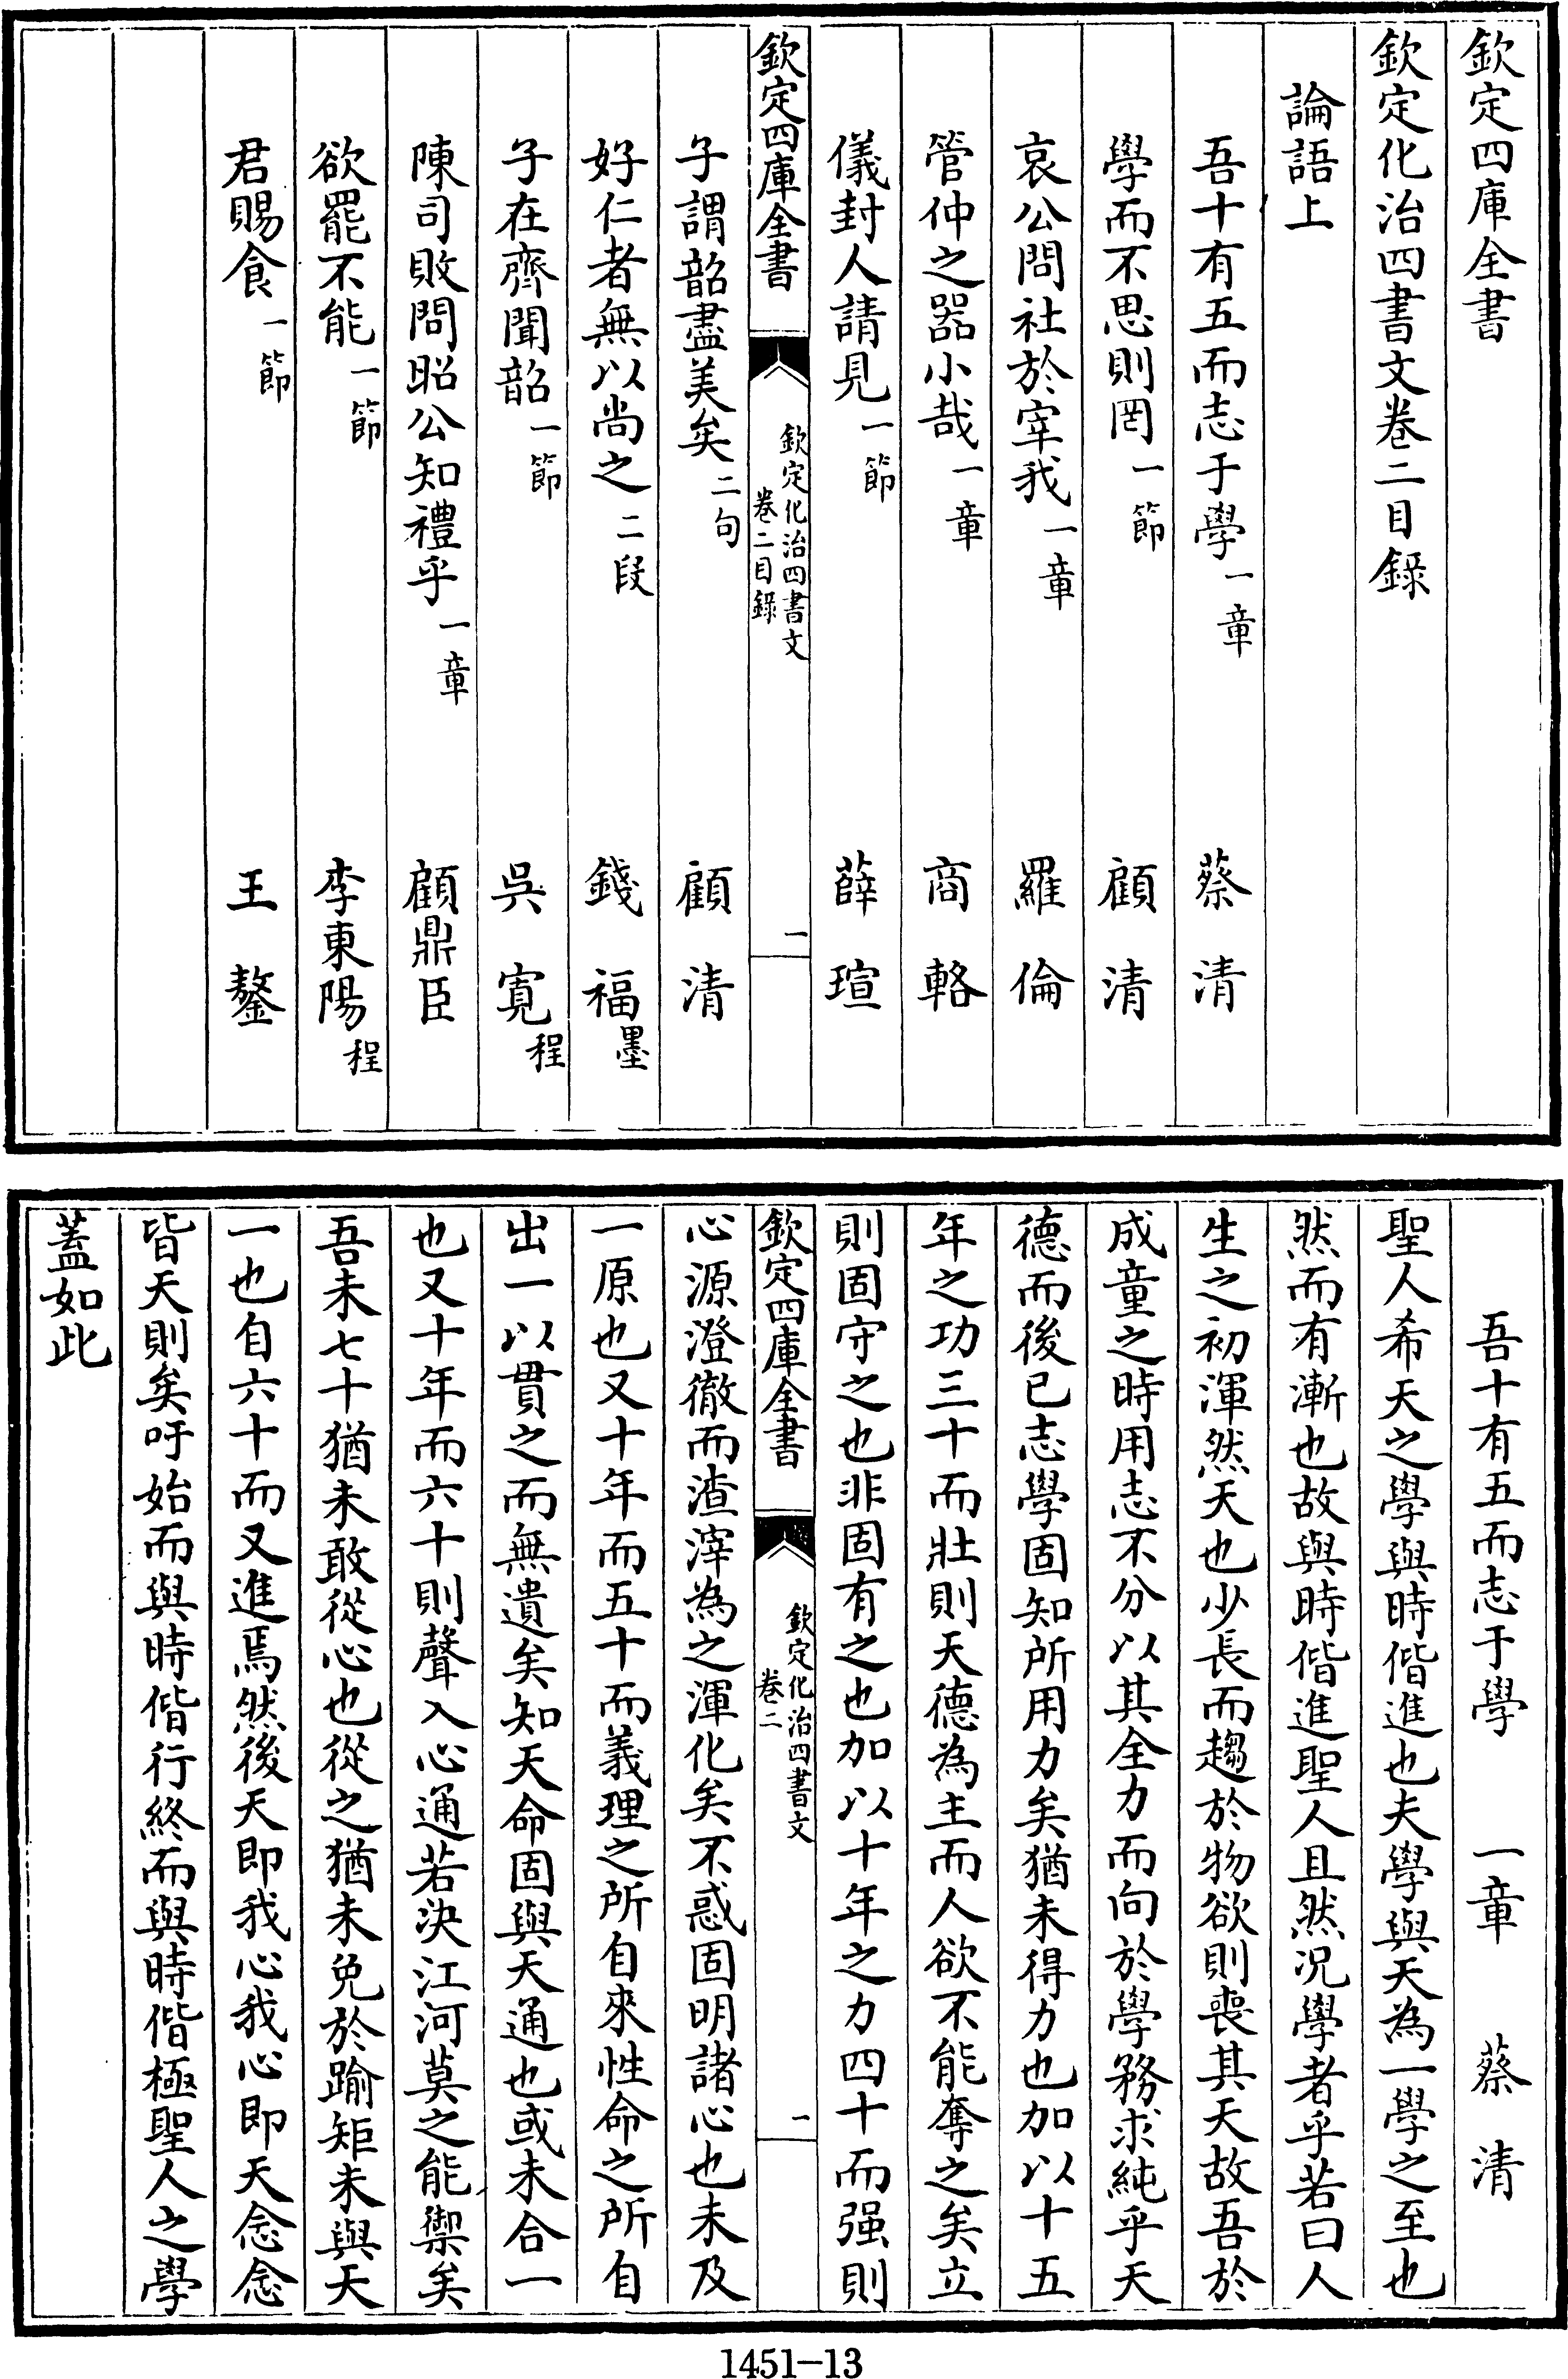 欽定四庫全書
欽定化治四書文卷二目錄
論語上
吾十有五而志于學一章 蔡清
學而不思則罔一節 顧清
哀公問社於宰我一章 羅倫
管仲之器小哉一章 商輅
儀封人請見一節 薛瑄
欽定四庫全書 欽定化治四書文卷二目錄 一
子謂韶盡美矣二句 顧清
好仁者無以尚之二段 錢福墨
子在齊聞韶一節 吳寬程
陳司敗問昭公知禮乎一章 顧鼎臣
欲罷不能一節 李東陽程
君賜食一節 王鏊
吾十有五而志于學 一章 蔡清
聖人希天之學與時偕進也夫學與天為一學之至也
然而有漸也故與時偕進聖人且然況學者乎若曰人
生之初渾然天也少長而趨於物欲則喪其天故吾於
成童之時用志不分以其全力而向於學務求純乎天
德而後已志學固知所用力矣猶未得力也加以十五
年之功三十而壯則天德為主而人欲不能奪之矣立
則固守之也非固有之也加以十年之力四十而强則
欽定四庫全書 欽定化治四書文卷二 一
心源澄徹而渣滓為之渾化矣不惑固明諸心也未及
一原也又十年而五十而義理之所自來性命之所自
出一以貫之而無遺矣知天命固與天通也或未合一
也又十年而六十則聲入心通若決江河莫之能禦矣
吾未七十猶未敢從心也從之猶未免於踰矩未與天
一也自六十而又進焉然後天即我心我心即天念念
皆天則矣吁始而與時偕行終而與時偕極聖人之學
蓋如此
1451-13